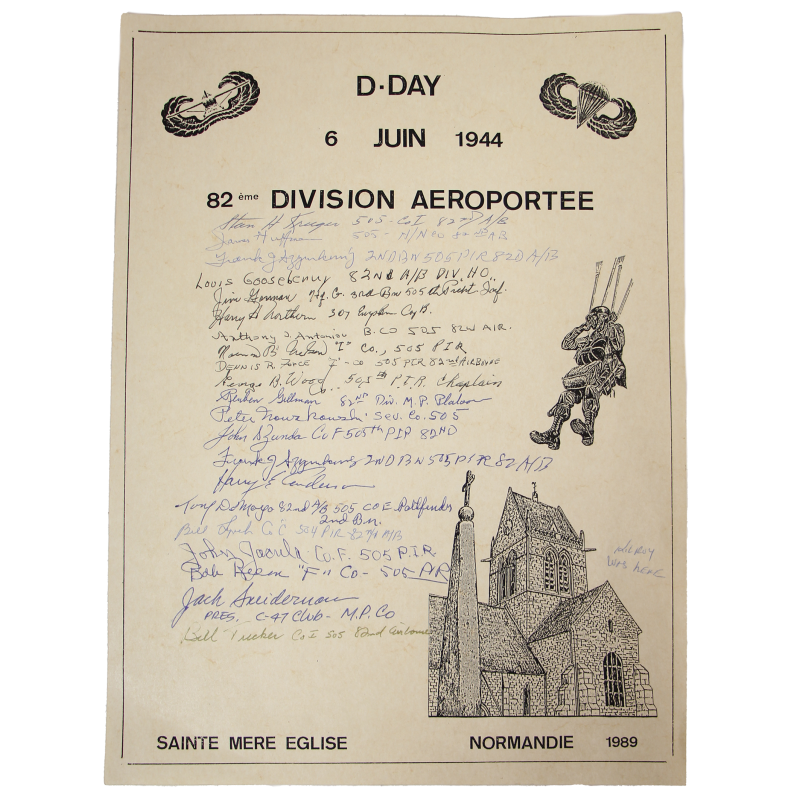 D-DAY
6 JUIN 1944
82 ème DIVISION AEROPORTEE
Stan H 505 - Co I 82ND A/B
505 - 82nd AB
Frank J 2ND BN 505 PIR 82D A/B
Louis Gooseberry 82ND A/B DIV. HQ.
Jim Gorman G. 3rd Bn 505th Prcht Inf.
Harry H Northern 307 Co B.
Anthony J. Antoniou B. CO 505 82ND AIR.
Norman B "I" Co., 505 PIR
DENNIS R. FORCE I - CO 505 PIR 82nd AIRBORNE
George B. Wood 505th P.I.R. Chaplain
Reuben Gillman 82ND Div. M.P. Platoon
Peter Sev. Co. 505
John Dzunda Co F 505th PIR 82ND
Frank J 2ND BN 505 PIR 82 A/B
Harry S Anderson
Tony DeMayo 82nd A/B 505 CO E Pathfinder
2nd Bn.
Bill Co "C" 504 PIR 82nd A/B
John Co. F. 505 P.I.R.
Bob "F" Co - 505 PIR
Jack
PRES. C-47 Club - M.P. Co
Bill Tucker Co I 505 82nd Airborne
KILROY
WAS HERE
SAINTE MERE EGLISE NORMANDIE 1989